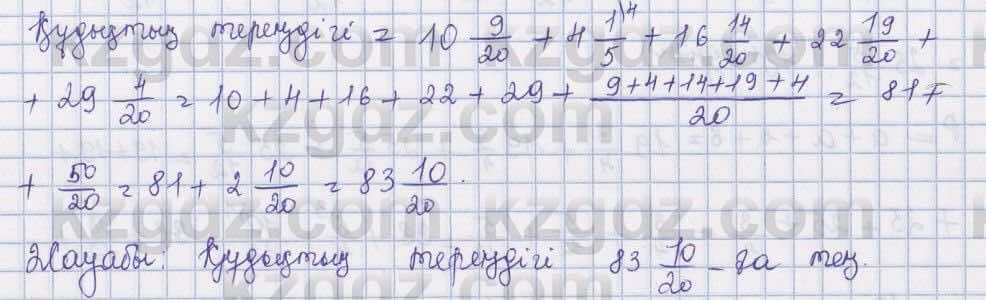 Құдықтың тереңдігі = 10 9/20 + 4 1/5 \4 + 16 14/20 + 22 19/20 +
+ 29 4/20 = 10 + 4 + 16 + 22 + 29 + (9+4+14+19+4)/20 = 81 +
+ 50/20 = 81 + 2 10/20 = 83 10/20.
Жауабы: Құдықтың тереңдігі 83 10/20 - ға тең.
kzgdz.com